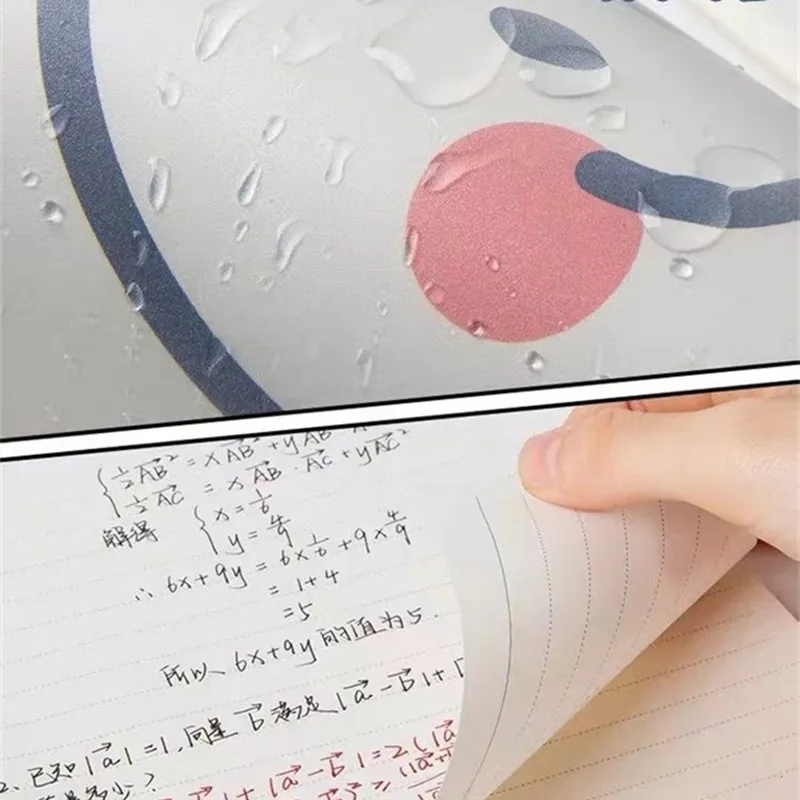 ½AB⃗² = xAB⃗² + yAB⃗
½AC⃗ = xAB⃗ · AC⃗ + yAC⃗²
解得 { x = 1/6
y = 4/9
∴ 6x + 9y = 6×1/6 + 9×4/9
= 1+4
=5
所以 6x+9y 的值为5.
2. 已知|a⃗|=1, 向量 b⃗ 满足 |a⃗ - b⃗| +
多少?
+ |a⃗ - b⃗| = 2(